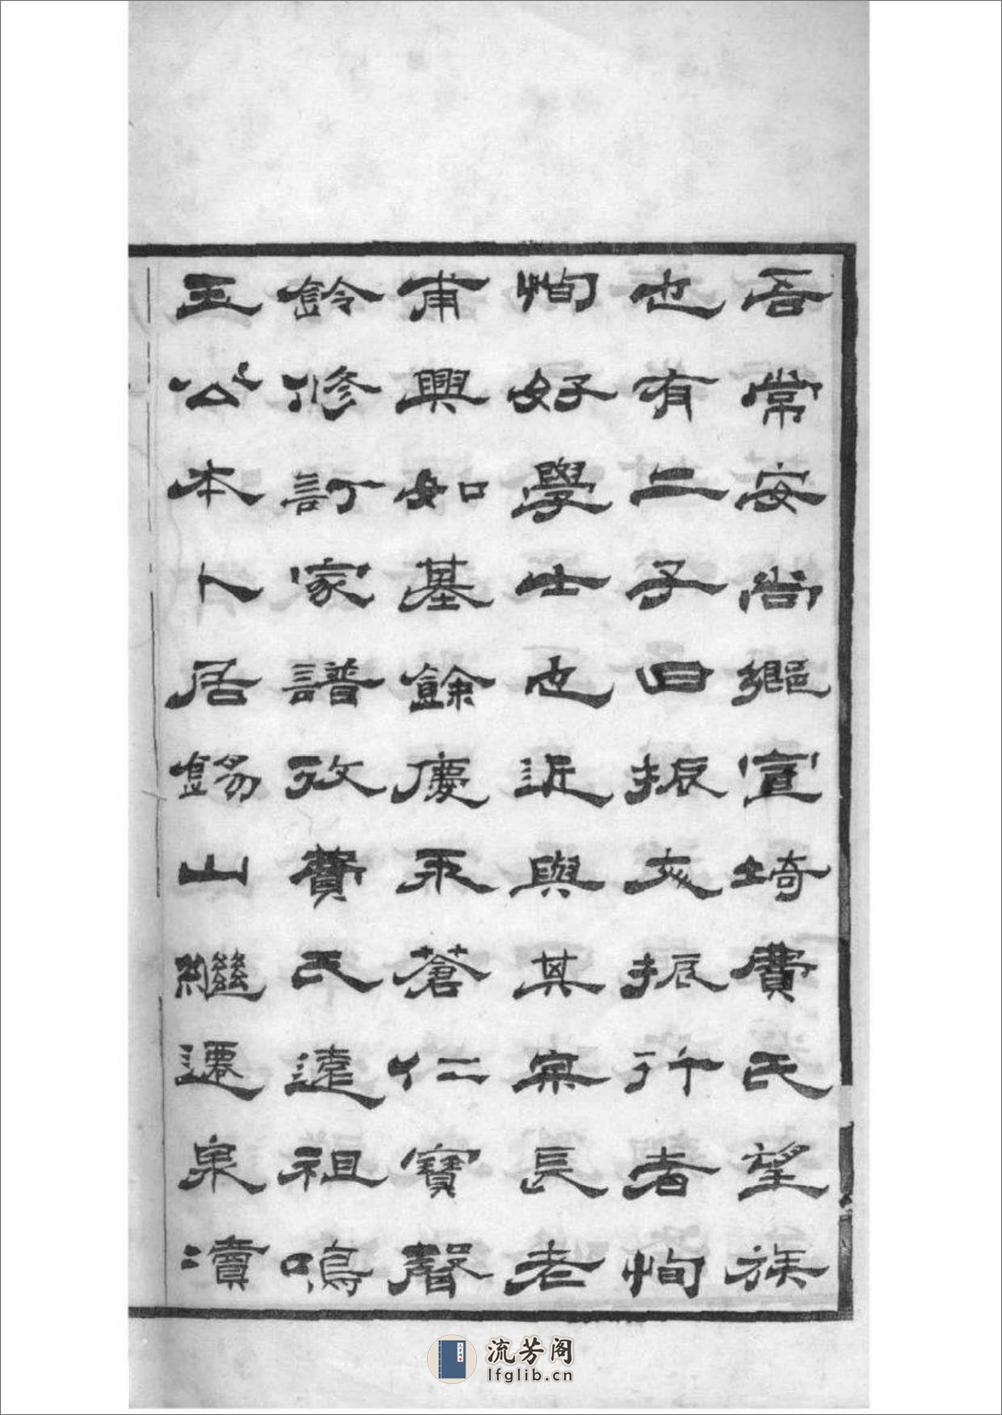 吾常安尚鄉宣埼費氏望族
也有二子曰振亥振行者恂
恂好學士也近與其宗長老
甫興如基餘慶永蒼仁寶聲
鈴修訂家譜攷費氏遠祖鳴
玉公本卜居錫山繼遷泉瀆
流芳阁
lfglib.cn